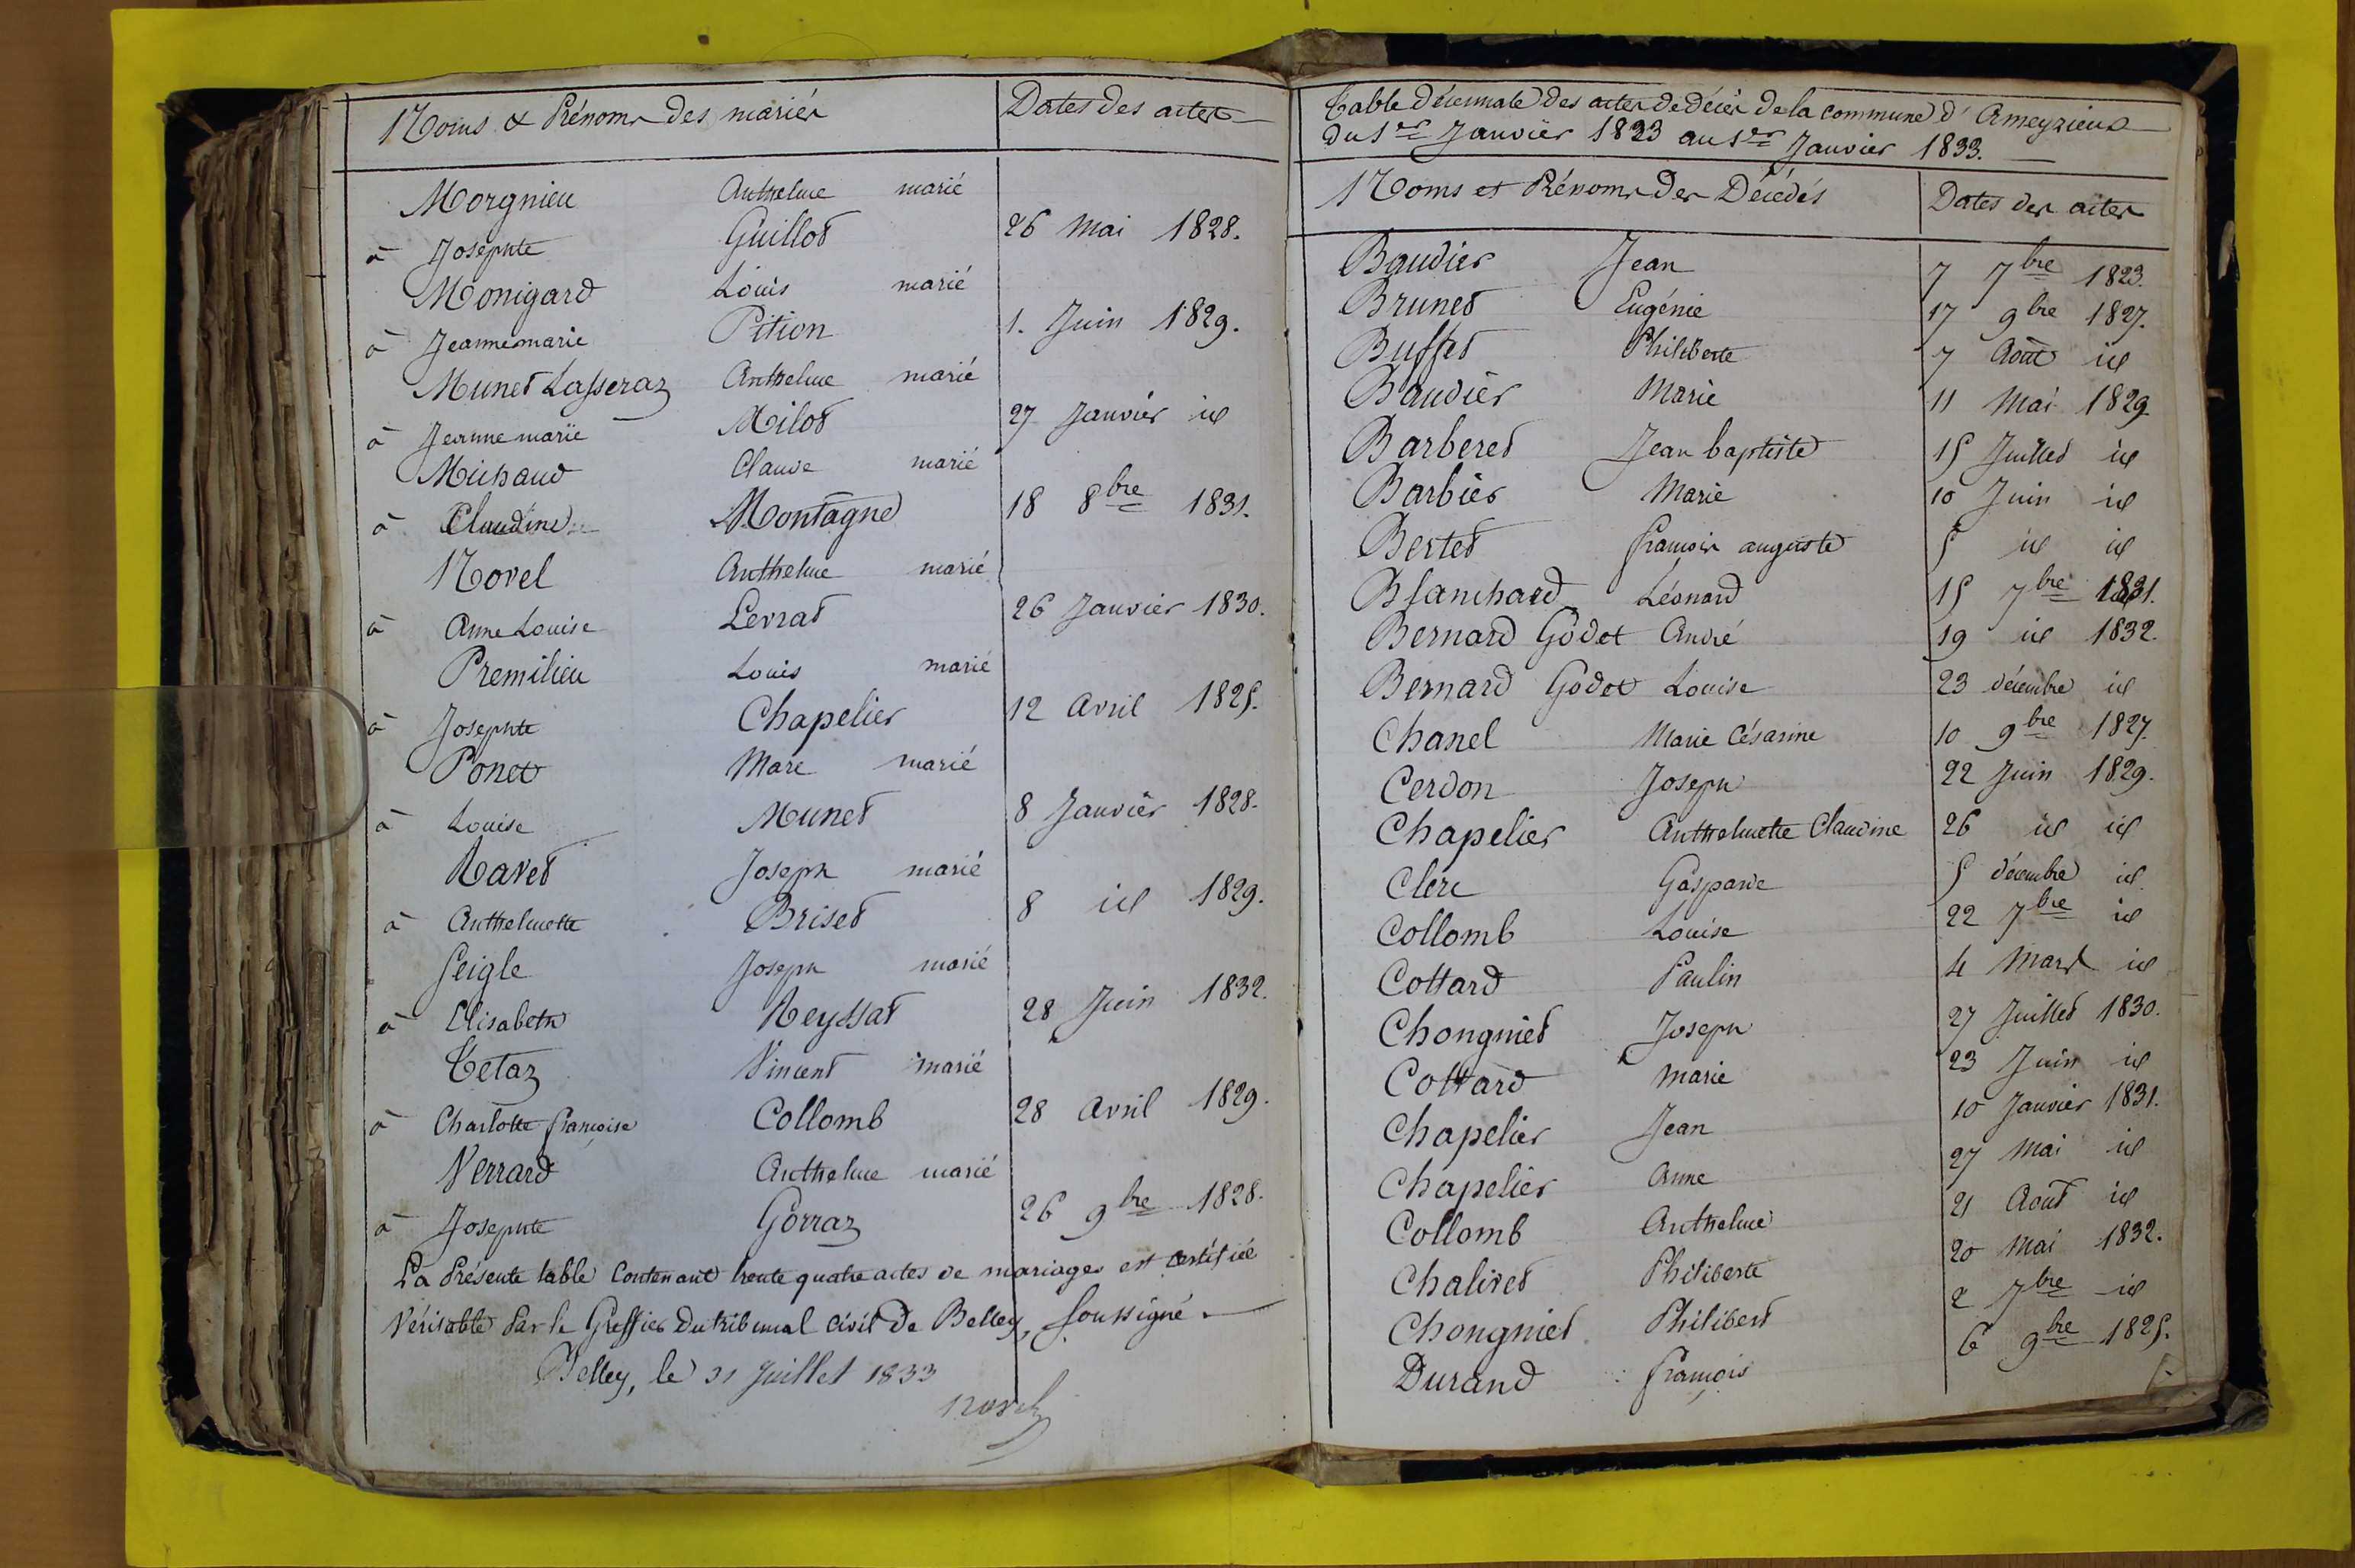 Noms & Prénoms des mariés Dates des actes
Morgnieu Anthelme marié
à Josephte Guillot 26 Mai 1828.
Monigard Louis marié
à Jeanne marie Pition 1. Juin 1829.
Munet Lasseraz Anthelme marié
à Jeanne marie Milot 27 Janvier id
Michaud Claude marié
à Claudine Montagne 18 8bre 1831.
Novel Anthelme marié
à Anne Louise Levrat 26 Janvier 1830.
Premilieu Louis marié
à Josephte Chapelier 12 Avril 1825.
Ponet Marc marié
à Louise Munet 8 Janvier 1828.
Ravet Joseph marié
à Anthelmette Briset 8 id 1829.
Seigle Joseph marié
à Elisabeth Reyssat 28 Juin 1832.
Tetaz Vincent marié
à Charlotte françoise Collomb 28 Avril 1829.
Verrard Anthelme marié
à Josephte Gorraz 26 9bre 1828.
La Présente table Contenant trente quatre actes de mariages est certifiée
Véritable Par le Greffier Du tribunal Civil De Belley, Soussigné.
Belley, le 31 Juillet 1833
Table Décennale des actes de décès de la commune d'Ameyzieux
du 1er Janvier 1823 au 1er Janvier 1833.
Noms et Prénoms des Décédés Dates des actes
Baudier Jean 7 7bre 1823.
Brunet Eugénie 17 9bre 1827.
Buffet Philiberte 7 Août id
Baudier Marie 11 Mai 1829.
Barberet Jean baptiste 15 Juillet id
Barbier Marie 10 Juin id
Bertet françois auguste 5 id id
Blanchard Léonard 15 7bre 1831.
Bernard Godet André 19 id 1832.
Bernard Godet Louise 23 décembre id
Chanel Marie Césarine 10 9bre 1827.
Cerdon Joseph 22 Juin 1829.
Chapelier Anthelmette Claudine 26 id id
Clerc Gasparde 5 décembre id
Collomb Louise 22 7bre id
Cottard Paulin 4 Mars id
Chongniet Joseph 27 Juillet 1830.
Cottard Marie 23 Juin id
Chapelier Jean 10 Janvier 1831.
Chapelier Anne 27 Mai id
Collomb Anthelme 21 Août id
Chalivet Philiberte 20 Mai 1832.
Chongniet Philibert 2 7bre id
Durand françois 6 9bre 1825.